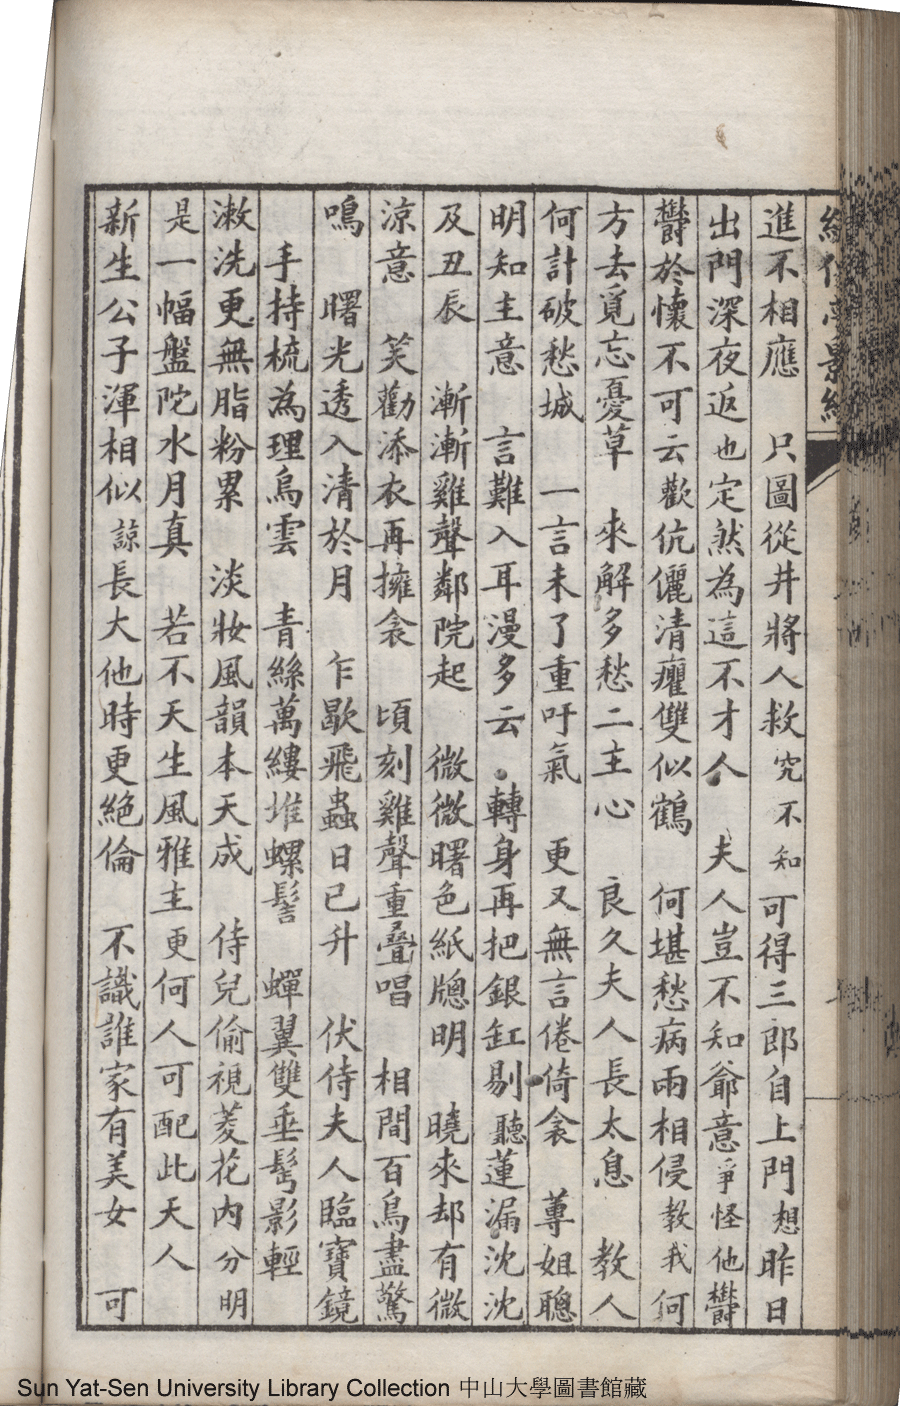 進不相應　只圖從井將人救究不知可得三郎自上門想昨日
出門深夜返也定然為這不才人　夫人豈不知爺意爭怪他欝
欝於懷不可云歡伉儷清癯雙似鶴　何堪愁病兩相侵教我何
方去覓忘憂草　來解多愁二主心　良久夫人長太息　教人
何計破愁城　一言未了重吁氣　更又無言倦倚衾　蓴姐聰
明知主意　言難入耳漫多云　轉身再把銀缸剔聽蓮漏沈沈
及丑辰　漸漸雞聲鄰院起　微微曙色紙牕明　曉來却有微
涼意　笑勸添衣再擁衾　頃刻雞聲重疊唱　相間百鳥盡驚
鳴　曙光透入清於月　乍歇飛蟲日已升　伏侍夫人臨寶鏡
　手持梳為理烏雲　青絲萬縷堆螺髻　蟬翼雙垂髩影輕
潄洗更無脂粉累　淡妝風韻本天成　侍兒偷視菱花內分明
是一幅盤陀水月真　若不天生風雅主更何人可配此天人
新生公子渾相似諒長大他時更絕倫　不識誰家有美女　可
Sun Yat-Sen University Library Collection 中山大學圖書館藏